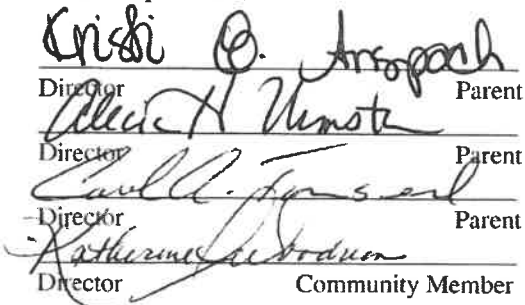 Kristi O. Anspach
Director Parent
Alecia H
Director Parent
Carol A. Townsend
Director Parent
Katherine Woodrum
Director Community Member